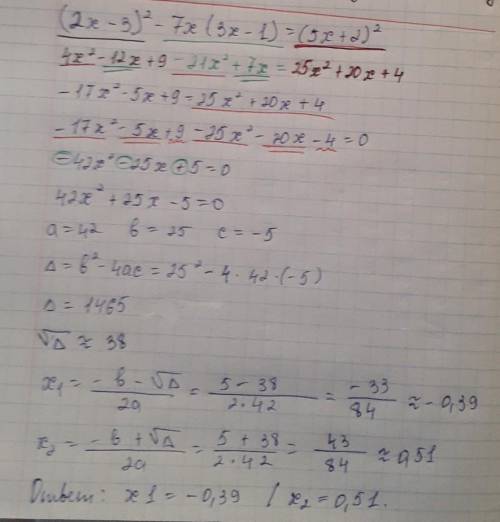 (2x - 3)² - 7x (3x - 1) = (5x + 2)²
4x² - 12x + 9 - 21x² + 7x = 25x² + 20x + 4
-17x² - 5x + 9 = 25x² + 20x + 4
-17x² - 5x + 9 - 25x² - 20x - 4 = 0
-42x² - 25x + 5 = 0
42x² + 25x - 5 = 0
a = 42 b = 25 c = -5
Δ = b² - 4ac = 25² - 4 · 42 · (-5)
Δ = 1465
√Δ ≈ 38
x₁ = (-b - √Δ)/(2a) = (5 - 38)/(2·42) = (-33)/84 ≈ -0,39
x₂ = (-b + √Δ)/(2a) = (5 + 38)/(2·42) = 43/84 ≈ 0,51
Ответ: x1 = -0,39 / x₂ = 0,51.